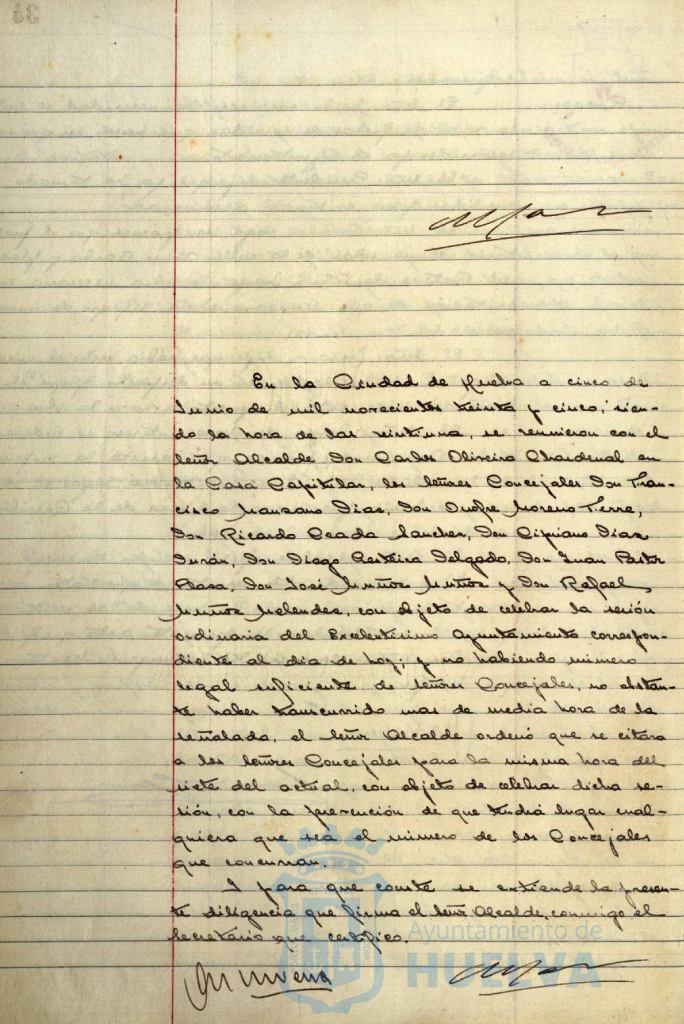 En la Ciudad de Huelva a cinco de
Junio de mil novecientos treinta y cinco, sien-
do la hora de las veintiuna, se reunieron con el
Señor Alcalde Don Carlos Oliveira Chardenal en
la Casa Capitular, los Señores Concejales Don Fran-
cisco Manzano Díaz, Don Onofre Moreno Terre,
Don Ricardo Ceada Sanchez, Don Cipriano Díaz
Durán, Don Diego Delgado, Don Juan Pastor
Plaza, Don José Muñoz Muñoz y Don Rafael
Muñoz Melendez, con objeto de celebrar la sesión
ordinaria del Excelentísimo Ayuntamiento correspon-
diente al dia de hoy; y no habiendo número
legal suficiente de Señores Concejales, no obstan-
te haber transcurrido mas de media hora de la
señalada, el Señor Alcalde ordenó que se citara
a los Señores Concejales para la misma hora del
siete del actual, con objeto de celebrar dicha se-
sión, con la prevención de que tendrá lugar cual-
quiera que sea el número de los Concejales
que concurran.
Y para que conste se extiende la presen-
te diligencia que firma el Señor Alcalde, conmigo el
Secretario que certifico.
Ayuntamiento de
HUELVA